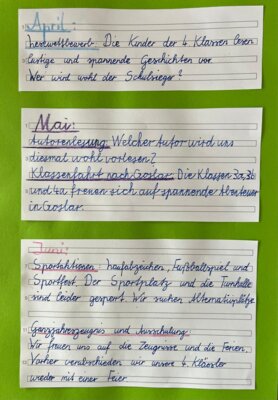 April:
Lesewettbewerb: Die Kinder der 4. Klassen lesen
lustige und spannende Geschichten vor.
Wer wird wohl der Schulsieger?
Mai:
Autorenlesung: Welcher Autor wird uns
diesmal wohl vorlesen?
Klassenfahrt nach Goslar: Die Klassen 3a, 3b
und 4a freuen sich auf spannende Abenteuer
in Goslar.
Juni:
Sportaktionen: Laufabzeichen, Fußballspiel und
Sportfest. Der Sportplatz und die Turnhalle
sind leider gesperrt. Wir suchen Alternativplätze.
Ganzjahreszeugnis und Ausschulung:
Wir freuen uns auf die Zeugnisse und die Ferien.
Vorher verabschieden wir unsere 4. Klässler
wieder mit einer Feier.